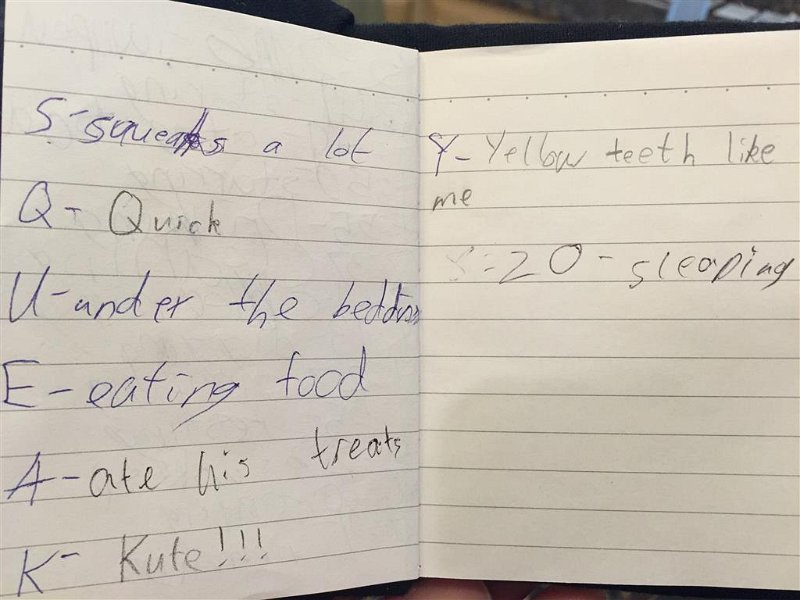 S-squeaks a lot
Q- Quick
U-under the bedding
E-eating food
A-ate his treats
K- Kute!!!
Y- Yellow teeth like
me
:20 - sleeping